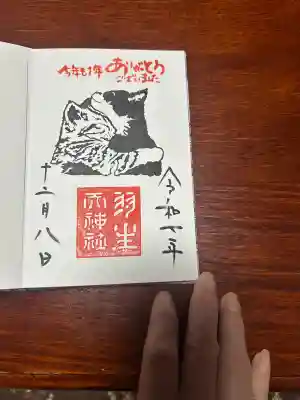 今年も1年
ありがとう
ございました
令和七年
羽生
天神社
十二月八日